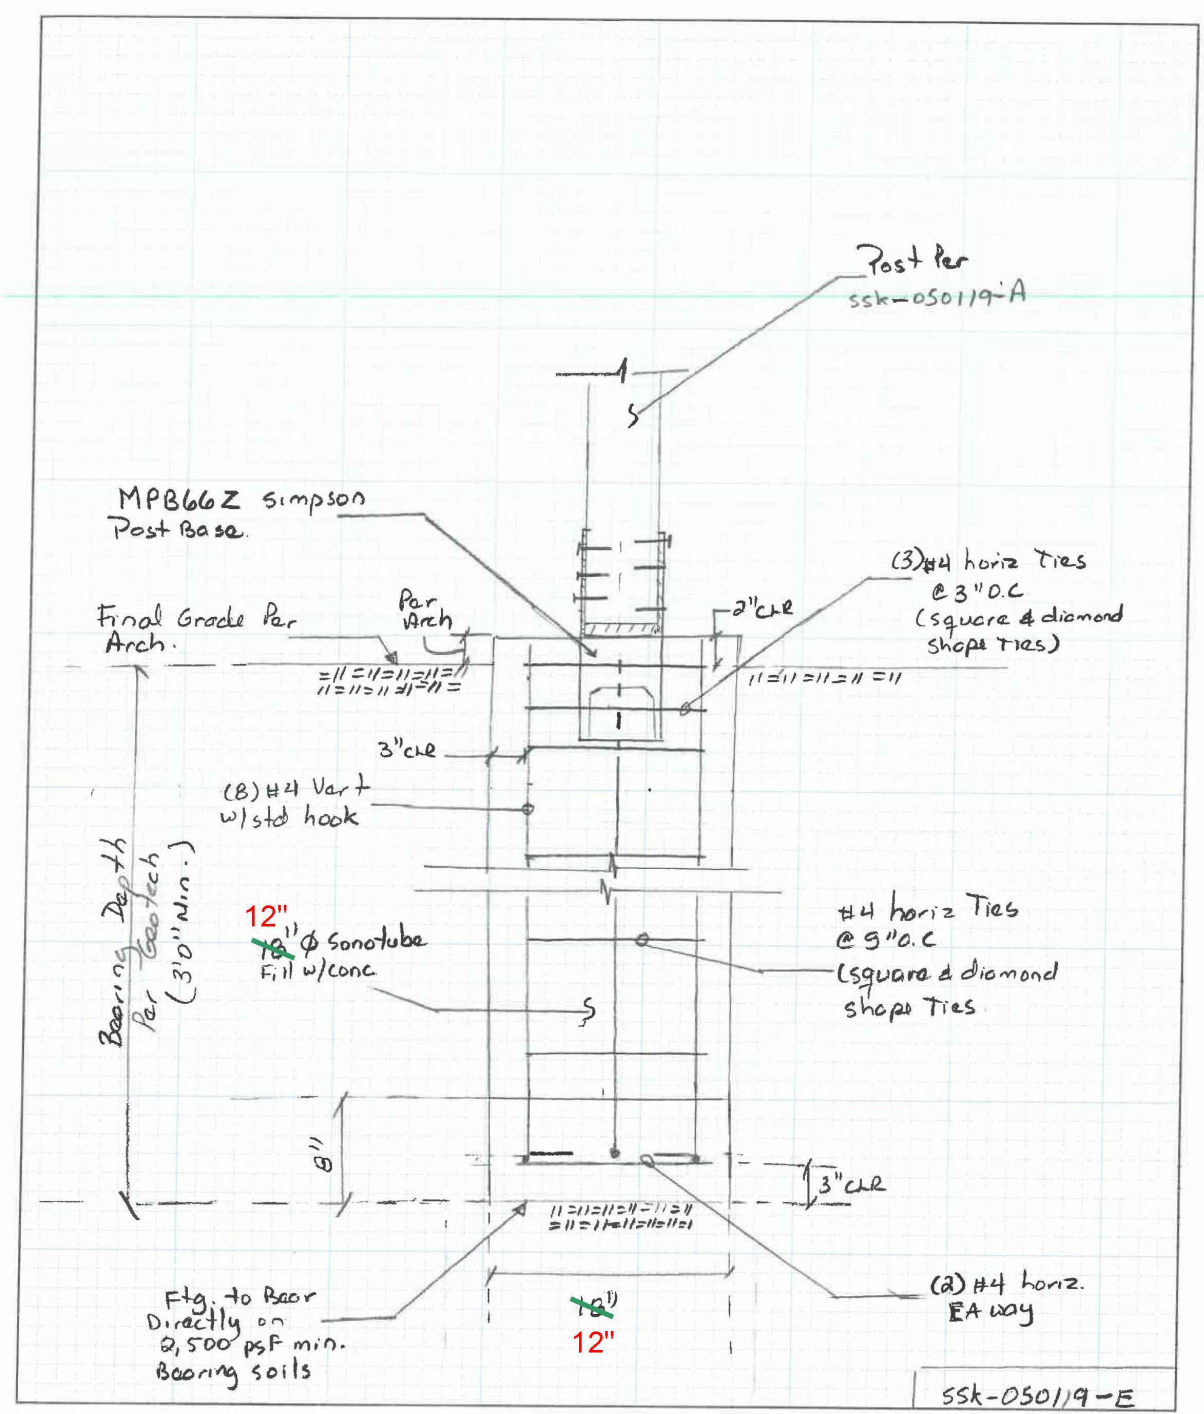 Post Per
ssk-050119-A
MPB66Z Simpson
Post Base.
(3)#4 horiz Ties
@ 3"O.C
(square & diamond
shape Ties)
2"CLR
Per
Arch
Final Grade Per
Arch.
3"CLR
(8) #4 Vert
w/std hook
Bearing Depth
Per Geotech
(3'0" Min.)
12"
18"Ø Sonotube
Fill w/conc
#4 horiz Ties
@ 9"O.C
(square & diamond
shape Ties
8"
3"CLR
Ftg. to Bear
Directly on
2,500 psf min.
Bearing soils
18"
12"
(2) #4 horiz.
EA way
SSk-050119-E